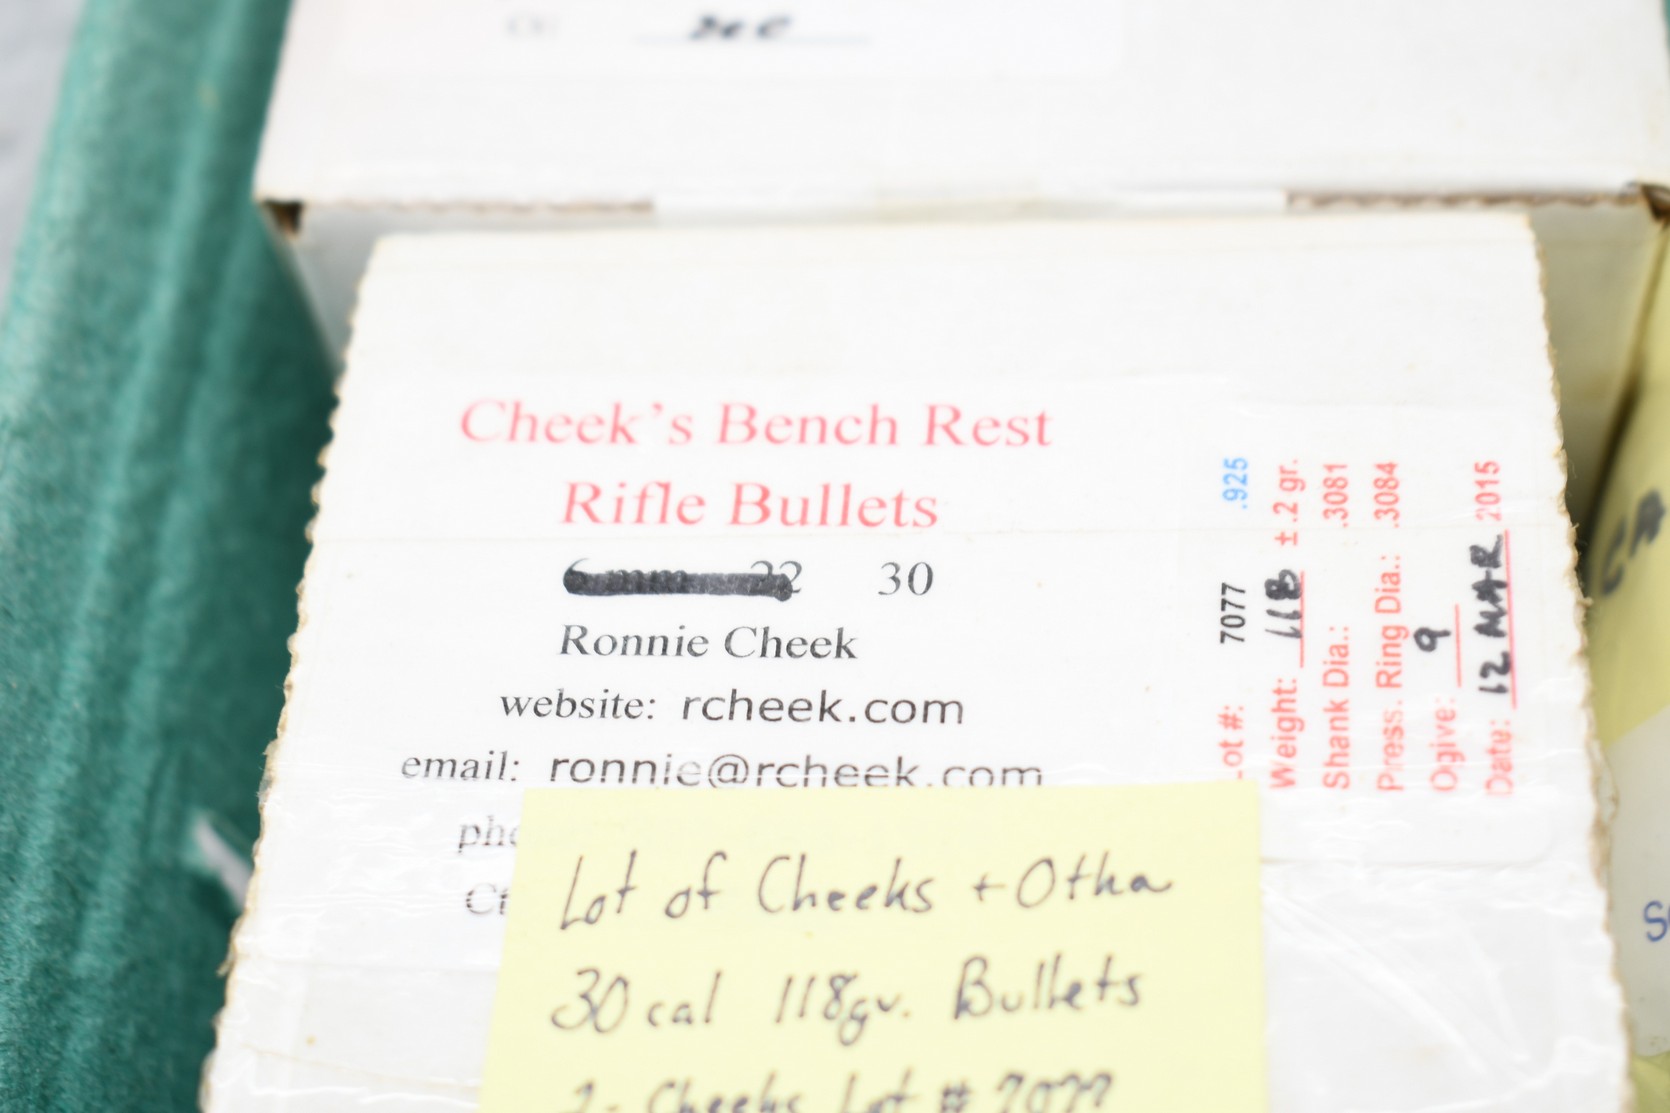 Cheek's Bench Rest
Rifle Bullets
6mm 22 30
Ronnie Cheek
website: rcheek.com
email: ronnie@rcheek.com
Lot #: 7077 .925
Weight: 118 ± .2 gr.
Shank Dia.: .3081
Press. Ring Dia.: .3084
Ogive: 9
Date: 12 MAR 2015
Lot of Cheeks + Otha
30 cal 118gr. Bullets
2- Cheeks Lot # 7077